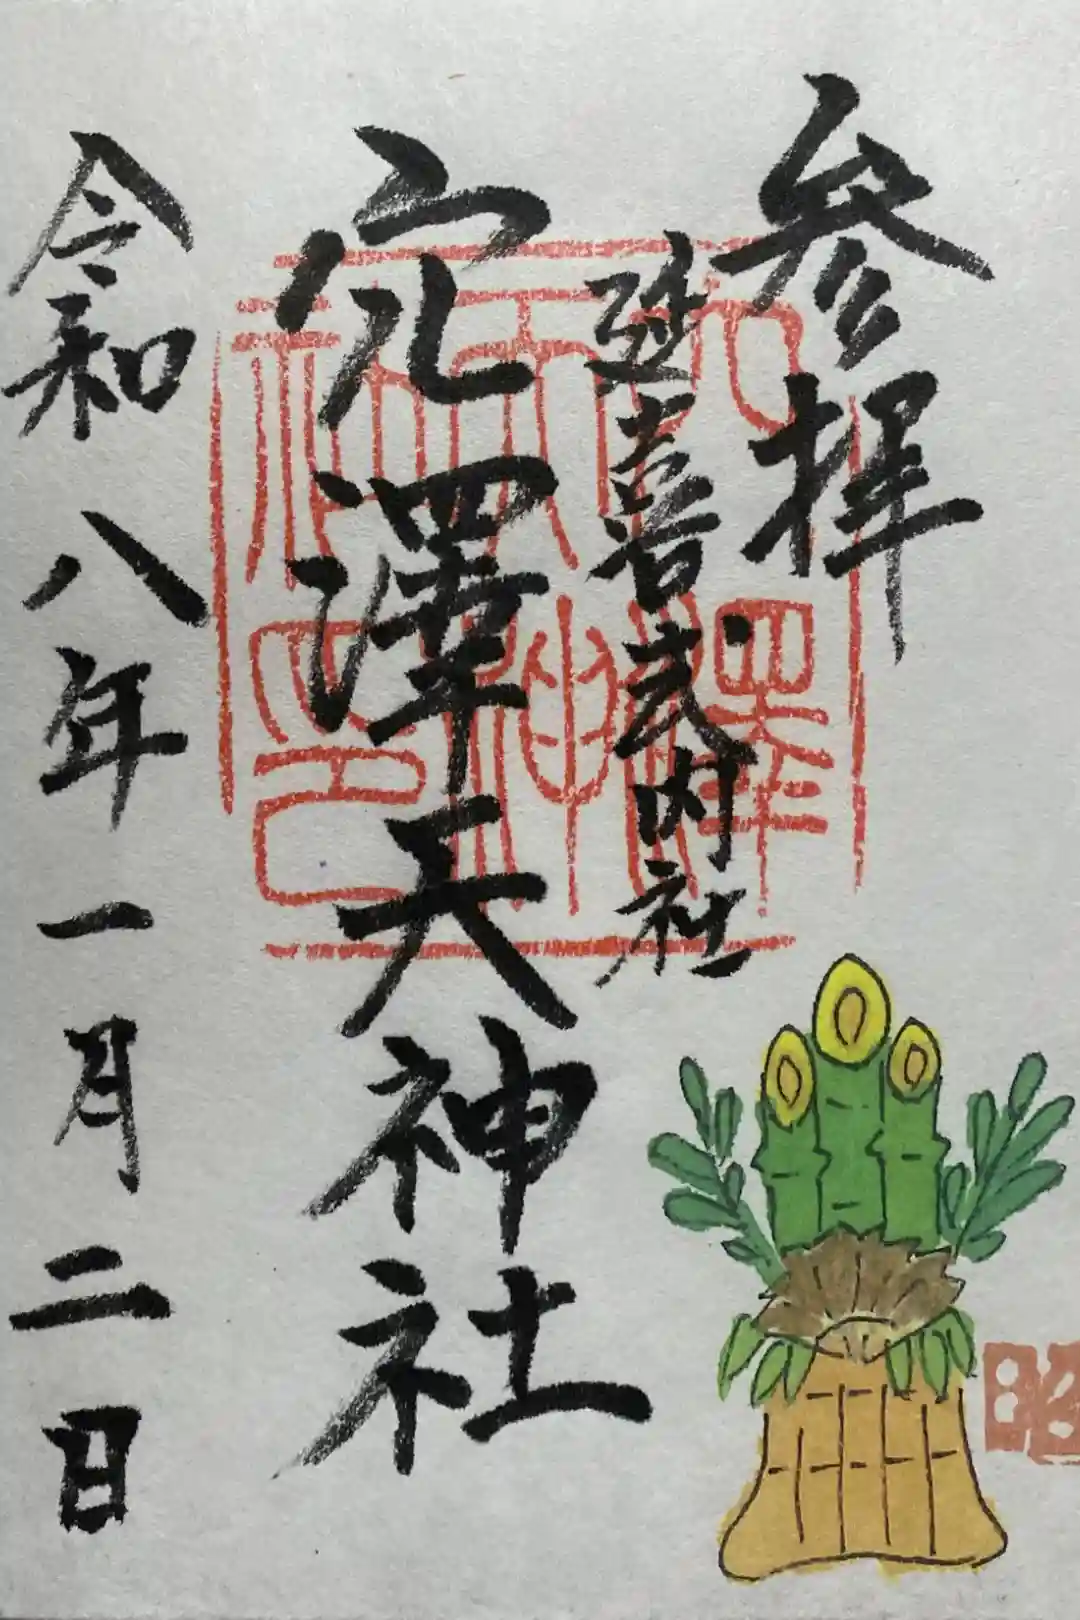 参拝
延喜式内社
穴澤天神社
令和八年一月二日
穴澤
天神
社印
昭